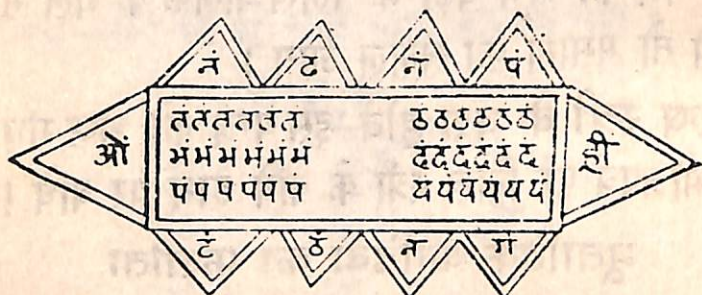 तं टं नं पं
ओं
तंतंतंतंतंतं ठंठंठंठंठंठं
मंमंमंमंमंमं दंदंदंदंदंदं
पंपंपंपंपंपं यंयंयंयंयंयं
ह्री
टं ठं तं गं